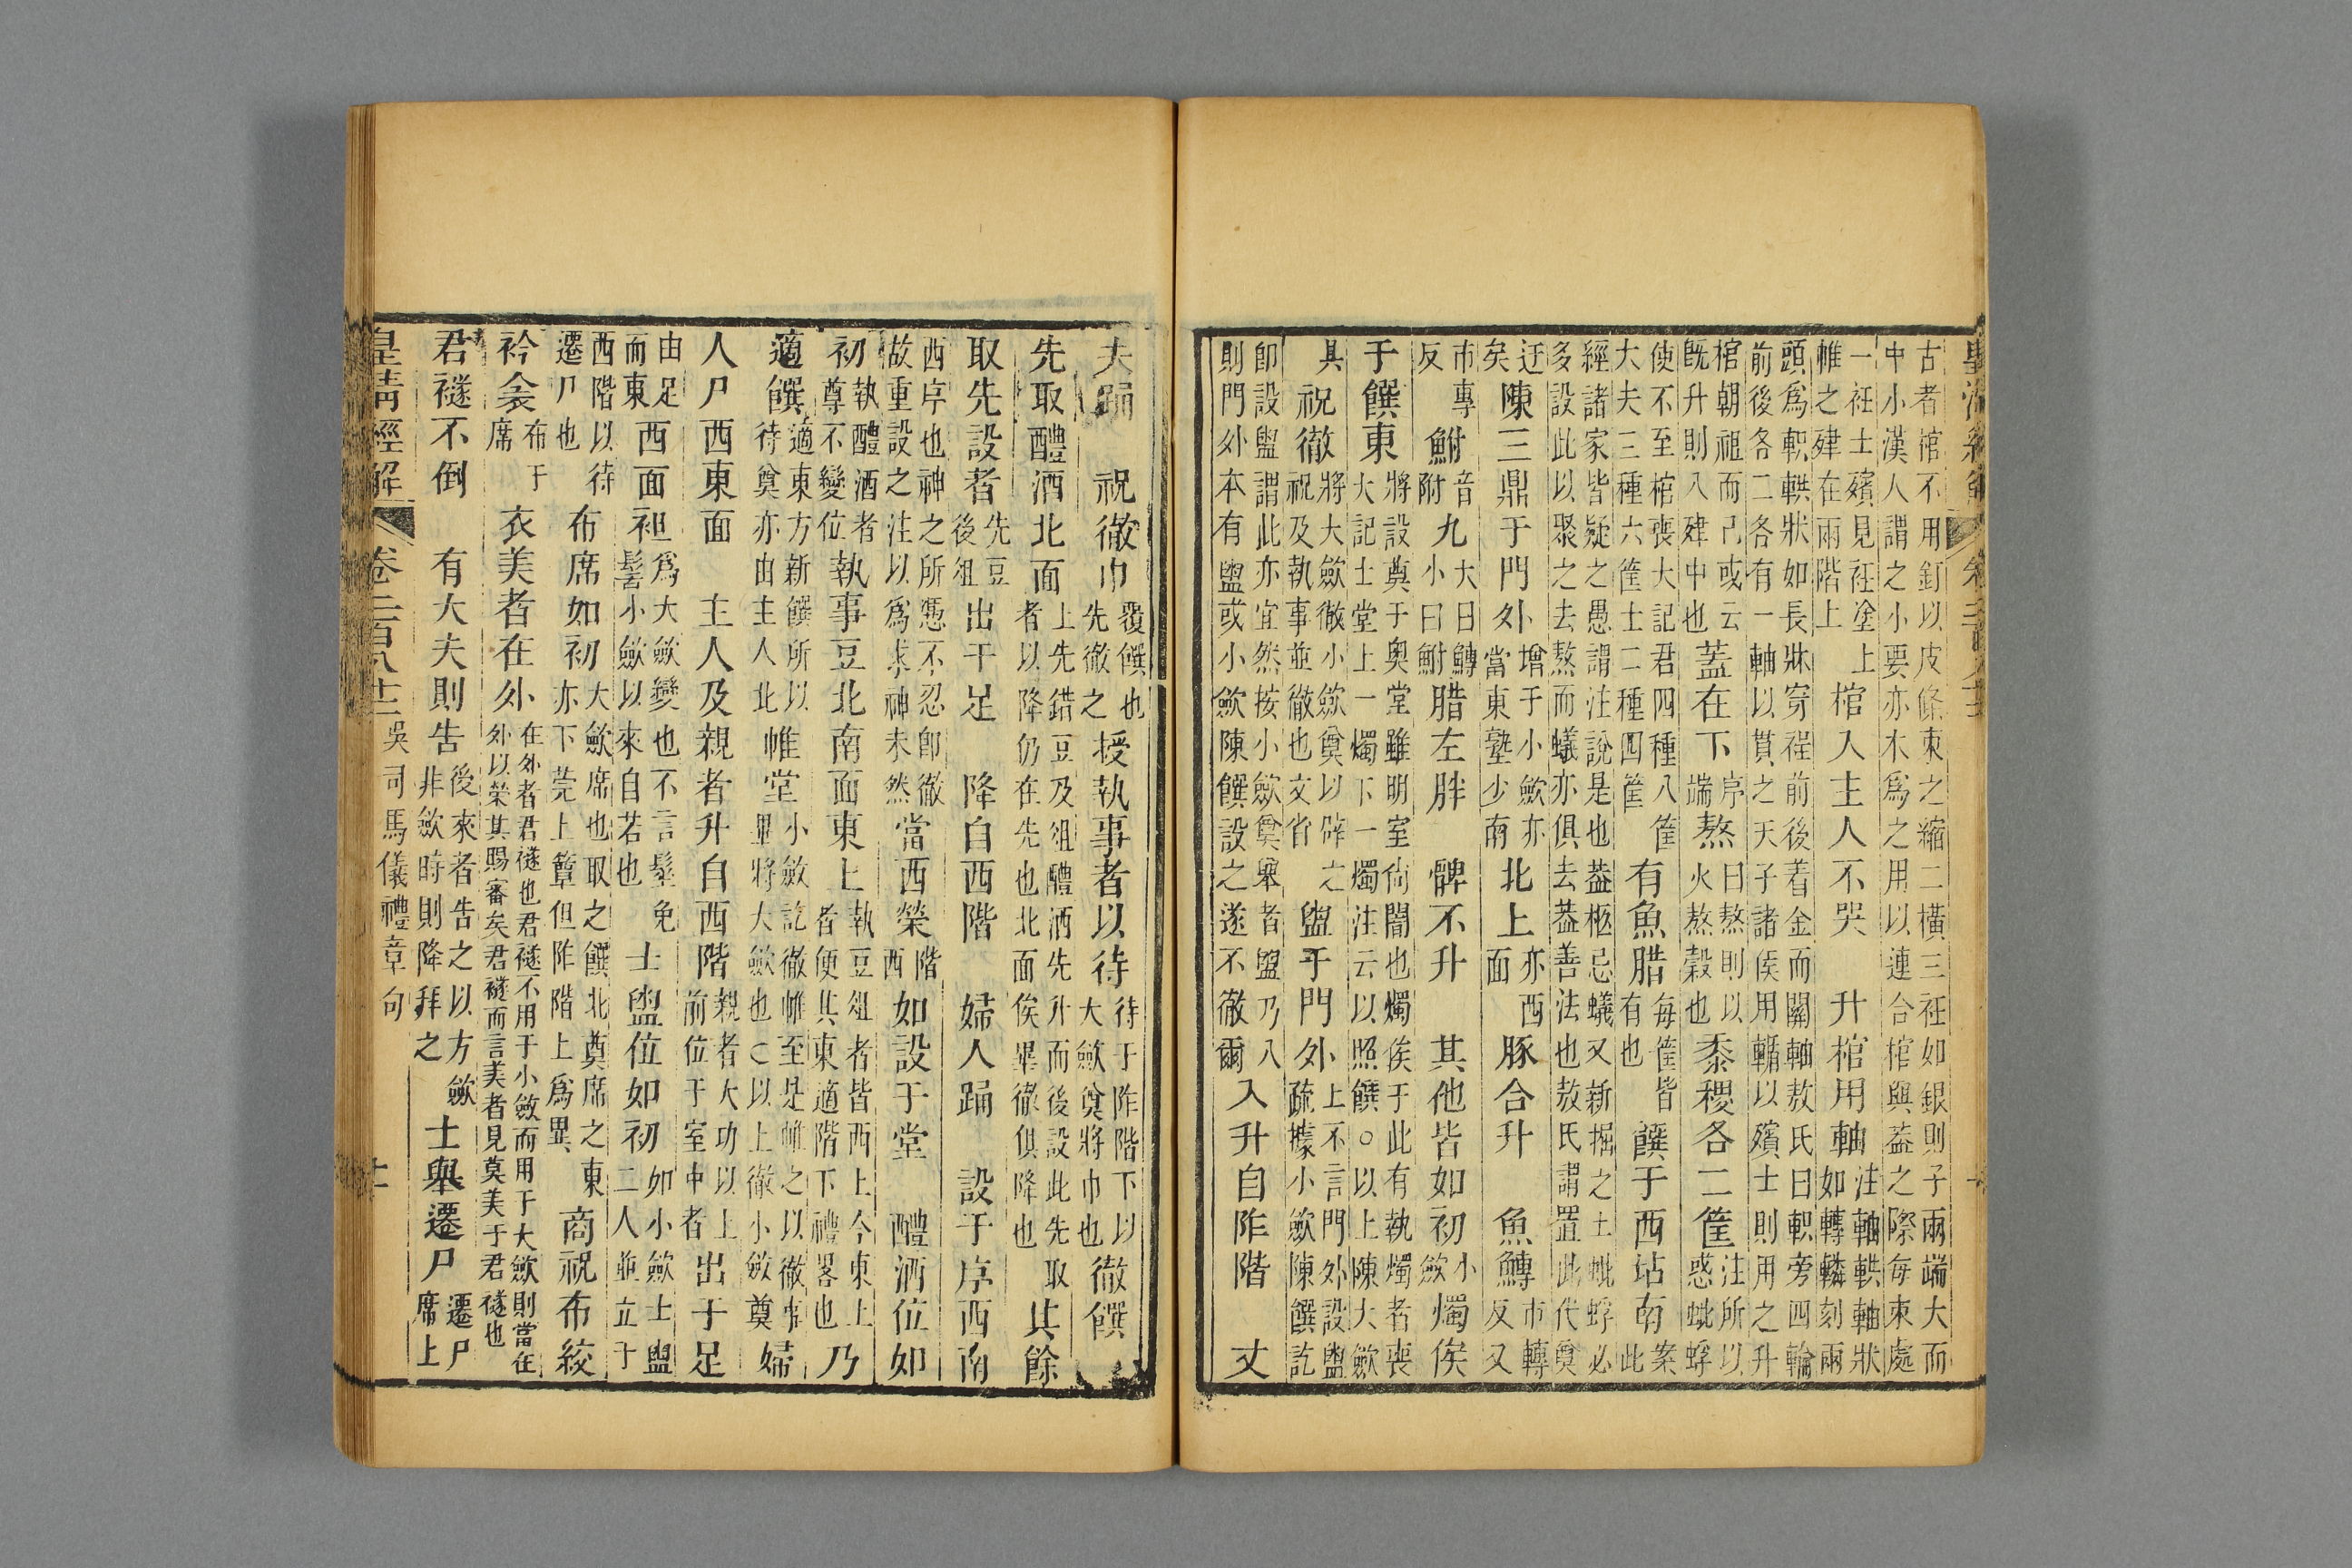 古者棺不用釘以皮條束之縮二橫三衽如銀則子兩端大而
中小漢人謂之小要亦木爲之用以連合棺與葢之際每束處
一衽士殯見衽塗上
帷之殔在兩階上
棺入主人不哭　升棺用軸
注軸輁軸狀
如轉轔刻兩
頭爲軹輁狀如長牀穿桯前後着金而關軸敖氏曰軹旁四輪
前後各二各有一軸以貫之天子諸侯用輴以殯士則用之升
棺朝祖而已或云
既升則八殔中也
蓋在下
序
端
熬
曰熬則以
火熬穀也
黍稷各二筐
注所以
惑蚍蜉
使不至棺喪大記君四種八筐
大夫三種六筐士二種四筐
有魚腊
每筐皆
有也
饌于西坫南
案
此
經諸家皆疑之愚謂注說是也葢柩忌蟻又新掘之土蚍蜉必
多設此以聚之去熬而蟻亦俱去葢善法也敖氏謂置此代奠
迂
矣
陳三鼎于門外
增于小歛亦
當東塾少南
北上
亦西
面
豚合升　魚鱄
市轉
反又
市專
反
鮒
音
附
九
大曰鱄
小曰鮒
腊左胖　髀不升　其他皆如初
小
歛
燭俟
于饌東
將設奠于奧堂雖明室尙闇也燭俟于此有執燭者喪
大記士堂上一燭下一燭注云以照饌○以上陳大歛
具
祝徹
將大歛徹小歛奠以辟之
祝及執事並徹也文省
盥于門外
上不言門外設盥
疏據小歛陳饌訖
卽設盥謂此亦宜然按小歛奠舉者盥乃八
則門外本有盥或小歛陳饌設之遂不徹爾
入升自阼階　丈
夫踊　祝徹巾
覆饌也
先徹之
授執事者以待
待于阼階下以
大歛奠將巾也
徹饌
先取醴酒北面
上先錯豆及俎醴酒先升而後設此先取
者以降仍在先也北面俟畢徹俱降也
其餘
取先設者
先豆
後俎
出于足　降自西階　婦人踊　設于序西南
西序也神之所憑不忍卽徹
故重設之注以爲求神未然
當西榮
階
西
如設于堂　醴酒位如
初
執醴酒者
尊不變位
執事豆北南面東上
執豆俎者皆西上今東上
者便其東適階下禮畧也
乃
適饌
適東方新饌所以
待奠亦由主人北
帷堂
小斂訖徹帷至是帷之以徹事
畢將大歛也○以上徹小斂奠
婦
人尸西東面　主人及親者升自西階
親者大功以上
前位于室中者
出于足
由足
而東
西面袒
爲大歛變也不言髽免
髻小歛以來自若也
士盥位如初
如小歛士盥
二人並立于
西階以待
遷尸也
布席如初
大歛席也取之饌北奠席之東
亦下莞上簟但阼階上爲異
商祝布絞
衿衾
布于
席
衣美者在外
在外者君襚也君襚不用于小斂而用于大歛則當在
外以榮其賜審矣君襚而言美者見莫美于君襚也
君襚不倒　有大夫則告
後來者告之以方歛
非歛時則降拜之
士舉遷尸
遷尸
席上
皇清經解
卷二百八十二
吳司馬儀禮章句